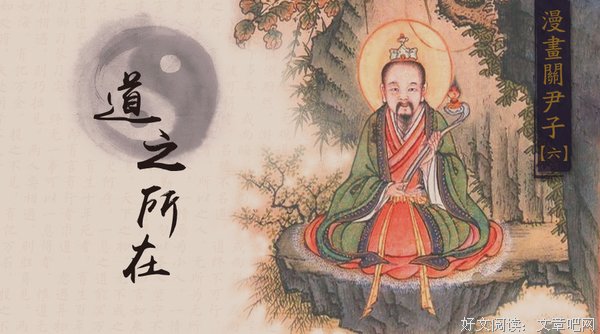 道之所在
漫畫關尹子
【六】
好文阅读:文章吧网